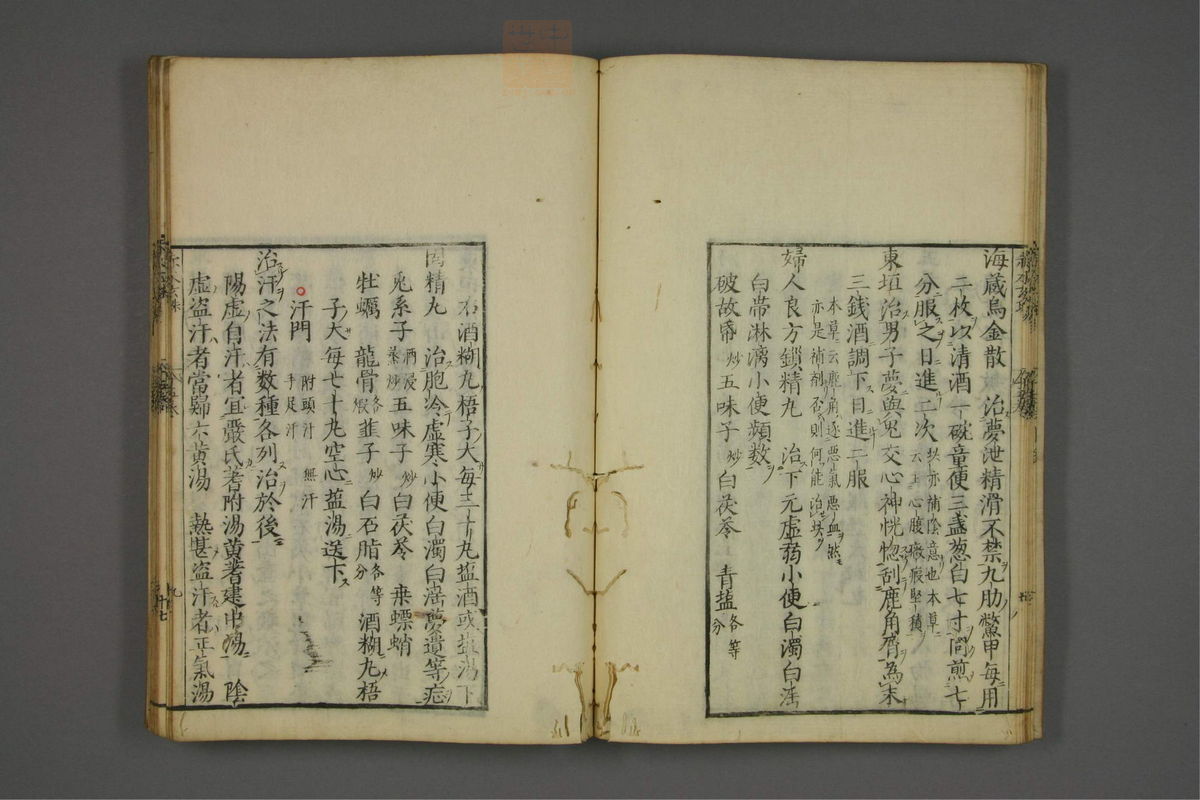 海藏烏金散　治夢泄精滑不禁九肋鱉甲每用
二枚以清酒一碗童便三盞葱白七寸同煎七
分服之日進二次
此亦補陰意也本草
云主心腹癥瘕堅積
東垣治男子夢與鬼交心神恍惚刮鹿角屑為末
三錢酒調下日進二服
本草云鹿角逐惡氣惡血然
亦是補劑否則何能治
婦人良方鎖精丸　治下元虛弱小便白濁白淫
白帶淋漓小便頻數
破故帋炒五味子炒白茯苓　青盐各等分
右酒糊丸梧子大每三十丸盐酒或盐湯下
固精丸　治胞冷虛寒小便白濁白淫夢遺等症
兎系子酒浸蒸炒五味子炒白茯苓　桒螵蛸
牡蠣　龍骨各煆韮子炒白石脂各等分酒糊丸梧
子大每七十丸空心盐湯送下
汗門　附頭汗　無汗
手足汗
治汗之法有数種各列治於後
陽虛自汗者宜嚴氏蓍附湯黄蓍建中湯　陰
虛盗汗者當歸六黄湯　熱甚盗汗者正氣湯